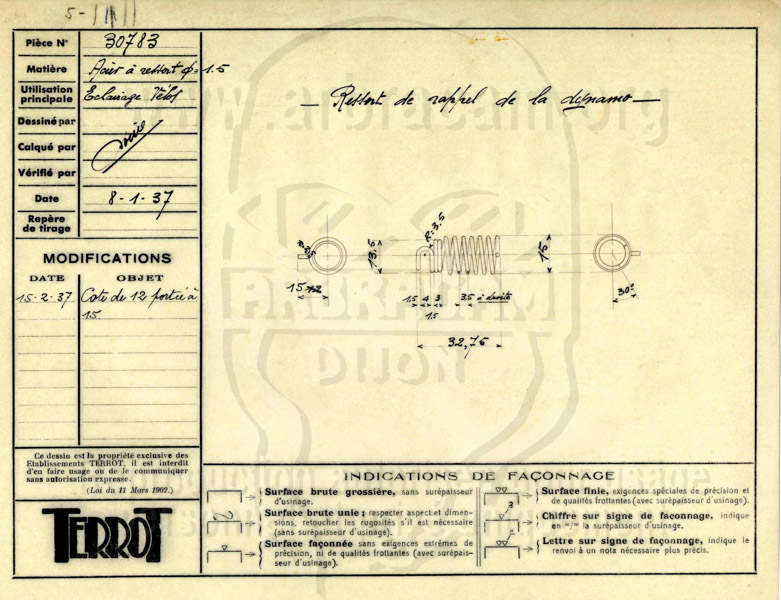 Pièce N° 30783
Matière Acier à ressort φ=1.5
Utilisation principale Eclairage Vélos
Dessiné par
Calqué par
Vérifié par
Date 8-1-37
Repère de tirage
MODIFICATIONS
DATE OBJET
15-2-37 Cote de 12 portée à
15.
Ce dessin est la propriété exclusive des
Etablissements TERROT, il est interdit
d'en faire usage ou de le communiquer
sans autorisation expresse.
(Loi du 11 Mars 1902.)
TERROT
— Ressort de rappel de la dynamo —
R=3.5
13,5
15
15 12
1,5 4 3 3,5 à droite
1,5
32,75
30°
INDICATIONS DE FAÇONNAGE
Surface brute grossière, sans surépaisseur
d'usinage.
Surface brute unie ; respecter aspect et dimen-
sions, retoucher les rugosités s'il est nécessaire
(sans surépaisseur d'usinage).
Surface façonnée sans exigences extrêmes de
précision, ni de qualités frottantes (avec surépais-
seur d'usinage).
Surface finie, exigences spéciales de précision et
de qualités frottantes (avec surépaisseur d'usinage).
3
Chiffre sur signe de façonnage, indique
en m/m la surépaisseur d'usinage.
Lettre sur signe de façonnage, indique le
renvoi à un nota nécessaire plus précis.
www.arbracam.org
ARBRACAM
DIJON